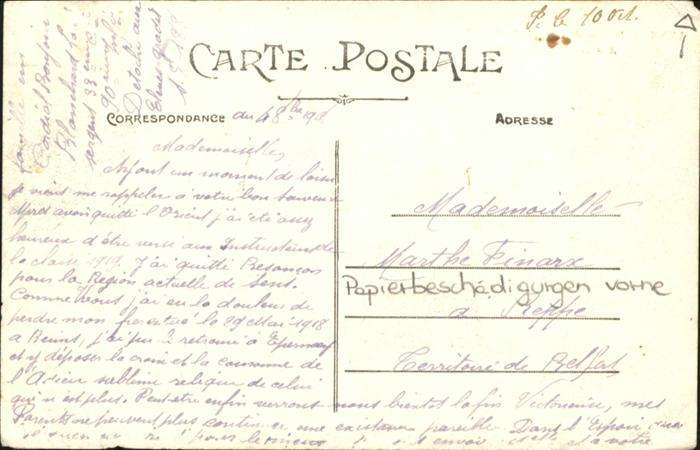 P. C. 10 Oct.
CARTE POSTALE
CORRESPONDANCE du 4 8bre 1918
ADRESSE
famille un
Cordial Bonjour
Blanchard
sergent 33
90
Détaché aux
Elèves
S. P. 199
Mademoiselle,
Ayant un moment de loisir
Je viens me rappeler à votre bon souvenir
Après avoir quitté l'Orient j'ai été assez
heureux d'être versé aux Instructeurs de
la classe 1919. J'ai quitté Besançon
pour la Région actuelle de Sens.
Comme vous j'ai eu la douleur de
perdre mon frère tué le 29 Mai 1918
à Reims, j'ai pu le retrouver à Epernay
et y déposer la croix et la couronne de
l'Adieu sublime relique de celui
qui n'est plus. Peut-être enfin verrons-nous bientôt la fin Victorieuse, mes
Parents ne peuvent plus continuer une existence pareille. Dans l'Espoir
envoi à votre
Mademoiselle
Marthe Finarx
Papierbeschädigungen vorne
à Reppe
Territoire de Belfort